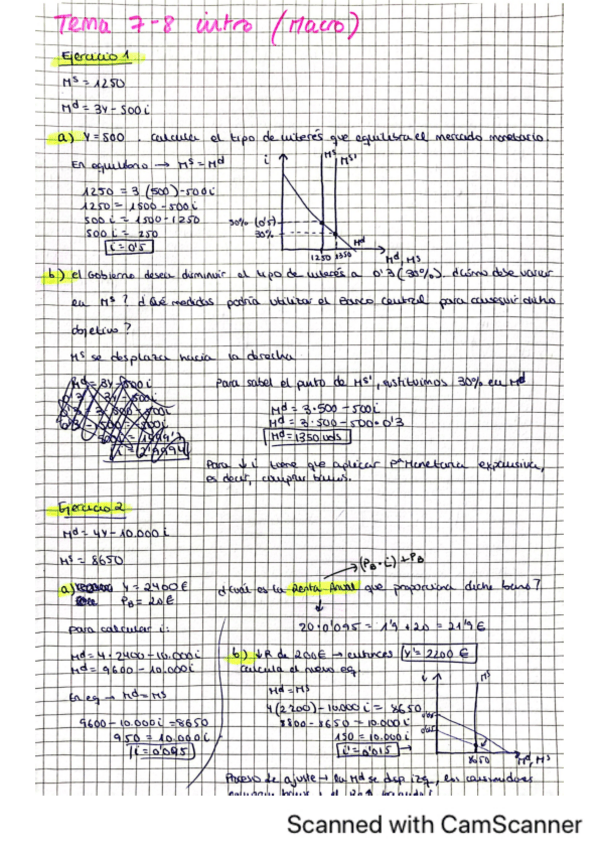 Tema 7-8 intro (Macro)
Ejercicio 1
Mˢ = 1250
Mᵈ = 3Y - 500i
a) Y = 500. Calcula el tipo de interés que equilibra el mercado monetario.
En equilibrio → Mˢ = Mᵈ
1250 = 3(500) - 500i
1250 = 1500 - 500i
500i = 1500 - 1250
500i = 250
i = 0'5
i
MS
MS'
50% (0'5)
30%
Md
1250 1350
Md, MS
b) el Gobierno desea disminuir el tipo de interés a 0'3 (30%). ¿Cómo debe variar
la Mˢ? ¿Qué medidas podría utilizar el Banco Central para conseguir dicho
objetivo?
Mˢ se desplaza hacia la derecha
Para saber el punto de MS', sustituimos 30% en Md
Md = 3·500 - 500i
Md = 3·500 - 500·0'3
Md = 1350 uds
Para ↓i tiene que aplicar Pª Monetaria expansiva,
es decir, comprar bonos.
Ejercicio 2
Mᵈ = 4Y - 10.000i
Mˢ = 8650
(PB · i) + PB
a) Y = 2400€ ¿Cuál es la Renta Anual que proporciona dicho bono?
PB = 20€
20·0'095 = 1'9 + 20 = 21'9€
Para calcular i:
Md = 4·2400 - 10.000i
Md = 9600 - 10.000i
En eq → Md = MS
9600 - 10.000i = 8650
950 = 10.000i
i = 0'095
b) ↓R de 200€ → entonces Y' = 2200€
Calcula el nuevo eq.
Md = MS
4(2200) - 10.000i = 8650
8800 - 8650 = 10.000i
150 = 10.000i
i' = 0'015 →
i
MS
8650
Md, MS
Proceso de ajuste → La Md se desp izq, los consumidores
Scanned with CamScanner